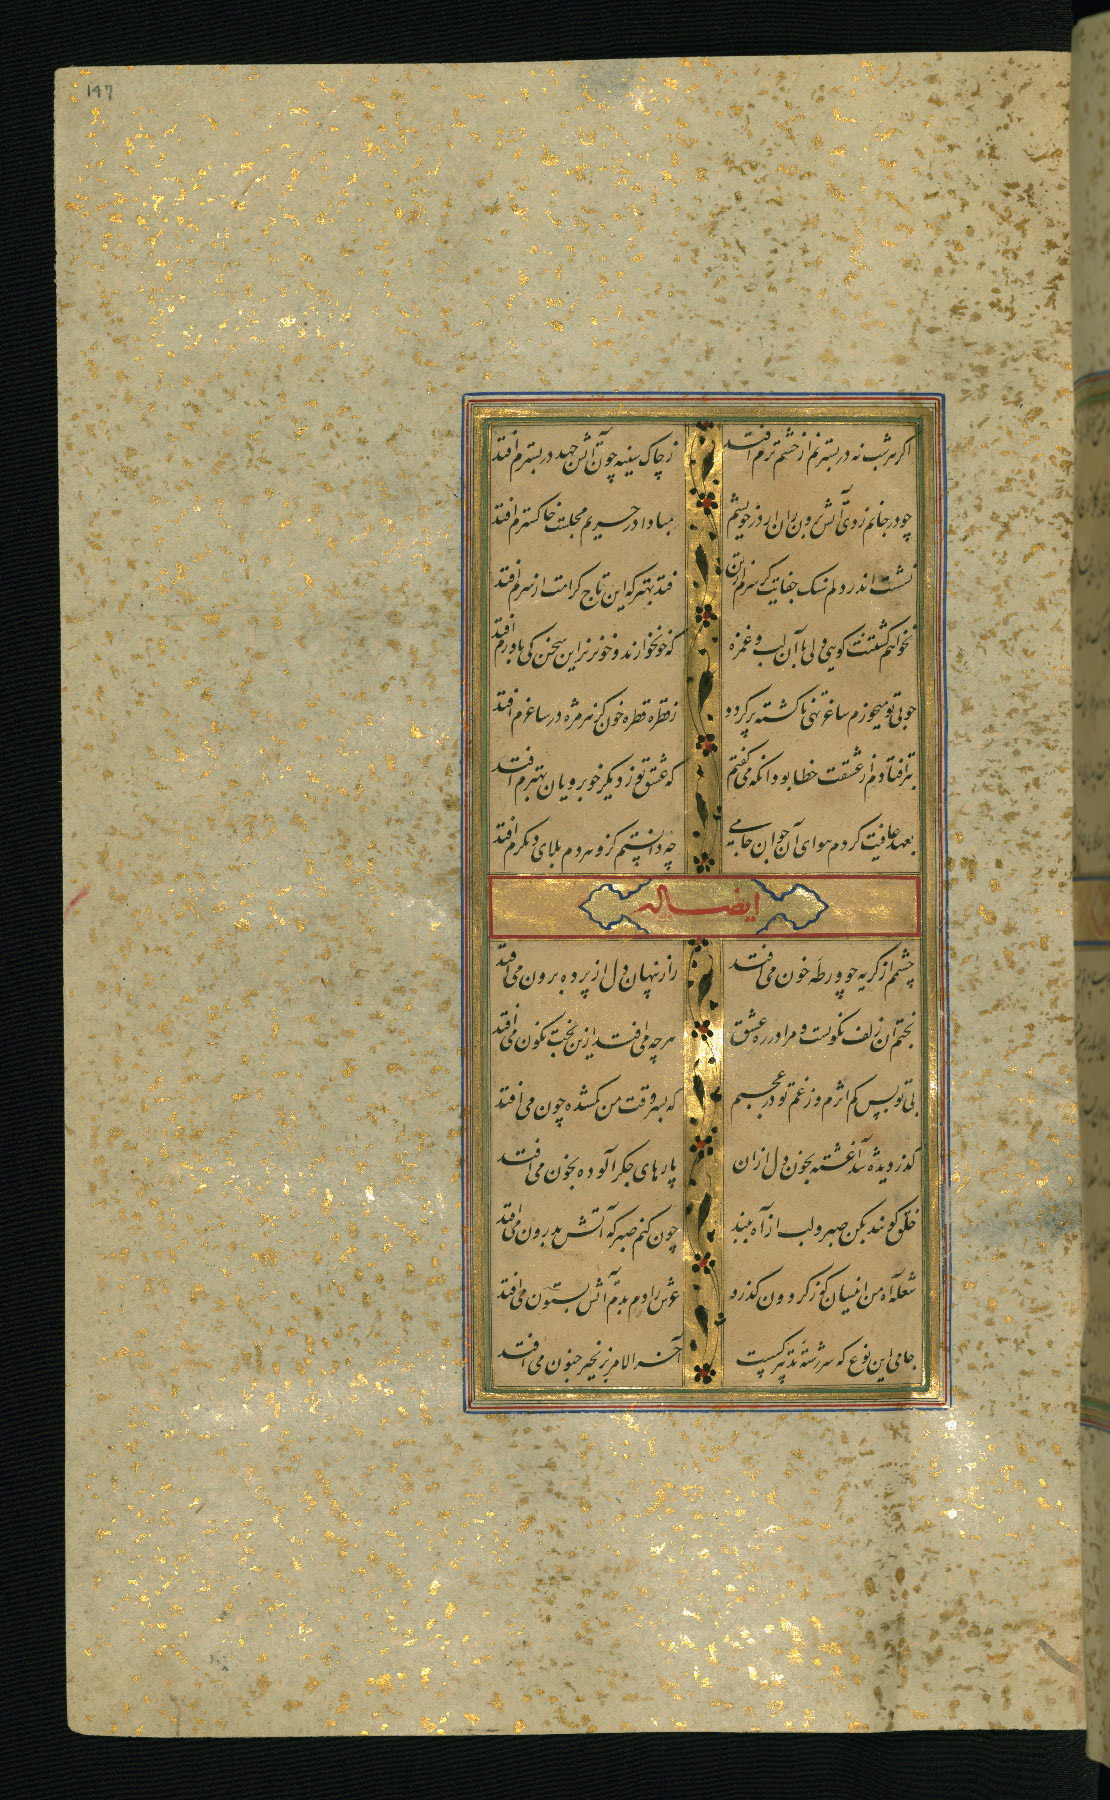 ۱۴۷
اکر هر شب نه در بسترنم از چشم ترم افتد ز چاک سینه چون آتش جهد در بسترم افتد
چو در جانم زدی آتش برون ران از در خویشم مبادا در حریم مجلست خاکسترم افتد
نشست اندر دلم سنک جفایت کر سرم فتد بهتر که این تاج کرامت از سرم افتد
نخواهم کشتنت کویی ولی با آن لب و غمزه که خونخوارند و خونریز این سخن کی باورم افتد
جویی تو میخورم ساغر تهی ناکشته پر کردد ز قطره قطره خون کز هر مژه در ساغرم افتد
بتر افتادم از عشقت خطا بود انکه می کفتم که عشق تو ز دیکر خوبرویان بهترم افتد
بعهد عافیت کردم هوای آن جوان جامی چه دانستم کزو هر دم بلای دیکرم افتد
ایضا له
چشمم از کریه چو در ورطه خون می افتد راز نهان دل از پرده برون می افتد
بختم آن زلف نکونست و مرا در ره عشق هر چه می افتد ازین بخت نکون می افتد
بی تو بس کم اثرم وز غم تو در عجبم که بسر وقت من کمشده چون می افتد
کذر دیده شد آغشته بخون دل ازان پارهای جکر آلوده بخون می افتد
خلق کویند بکن صبر و لب از آه ببند چون کنم صبر که آتش بدرون می افتد
شعله آه من انیسان کز کردون کذرد عرش را دم بدم آتش بستون می افتد
جامی این نوع که سر رشته تدبیر کسست آخر الامر بزنجیر جنون می افتد